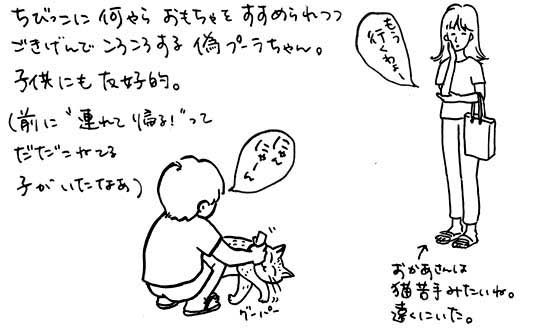 ちびっこに 何やら おもちゃを すすめられつつ
ごきげんで ころころする 偽プーラちゃん。
子供にも 友好的。
(前に "連れて帰る!" って
だだこねてる
子がいたなあ)
もう
行くわよー
にゃん
にゃーん
グーパー
↑
おかあさんは
猫苦手みたいね。
遠くにいた。